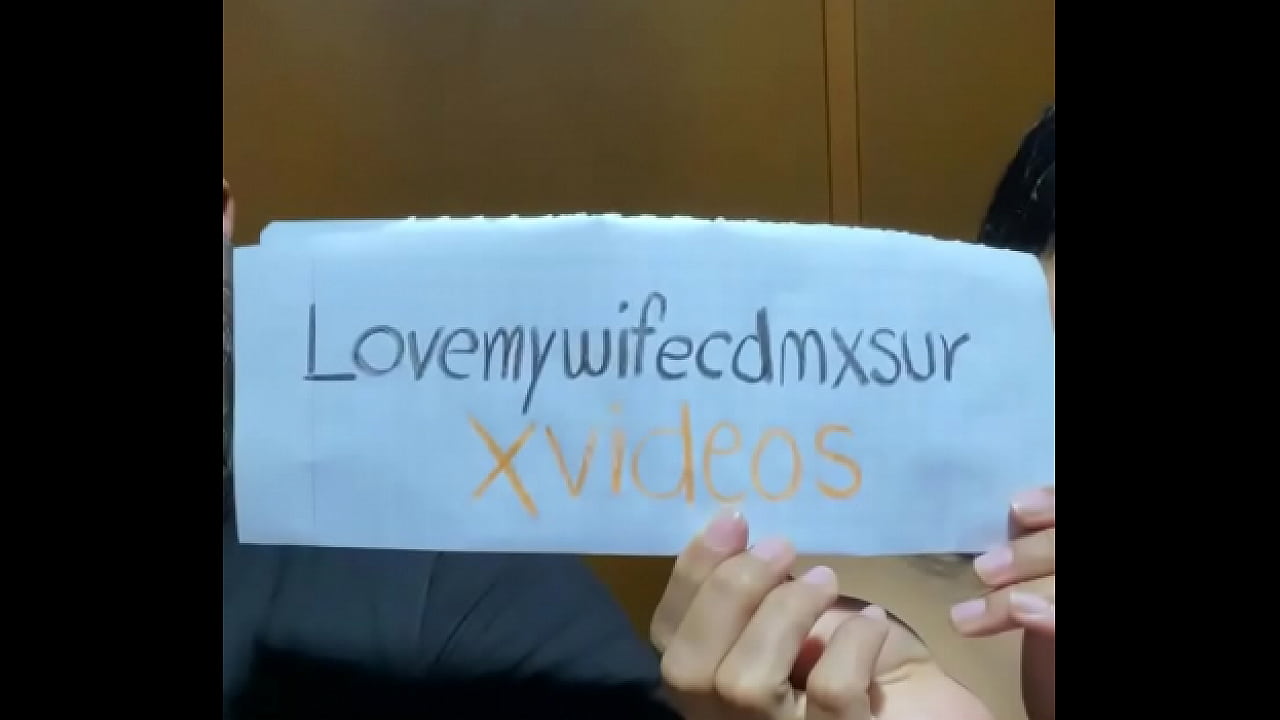 Lovemywifecdmxsur
xvideos